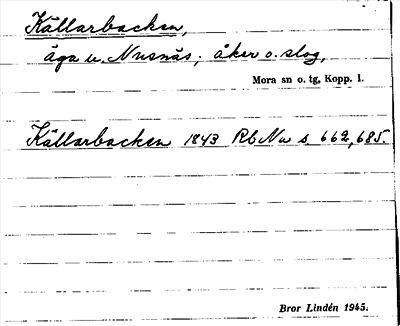 Källarbacken,
äga u. Nusnäs; åker o. slog,
Mora sn o. tg, Kopp. l.
Källarbacken 1843 RbNu s. 662, 685.
Bror Lindén 1945.